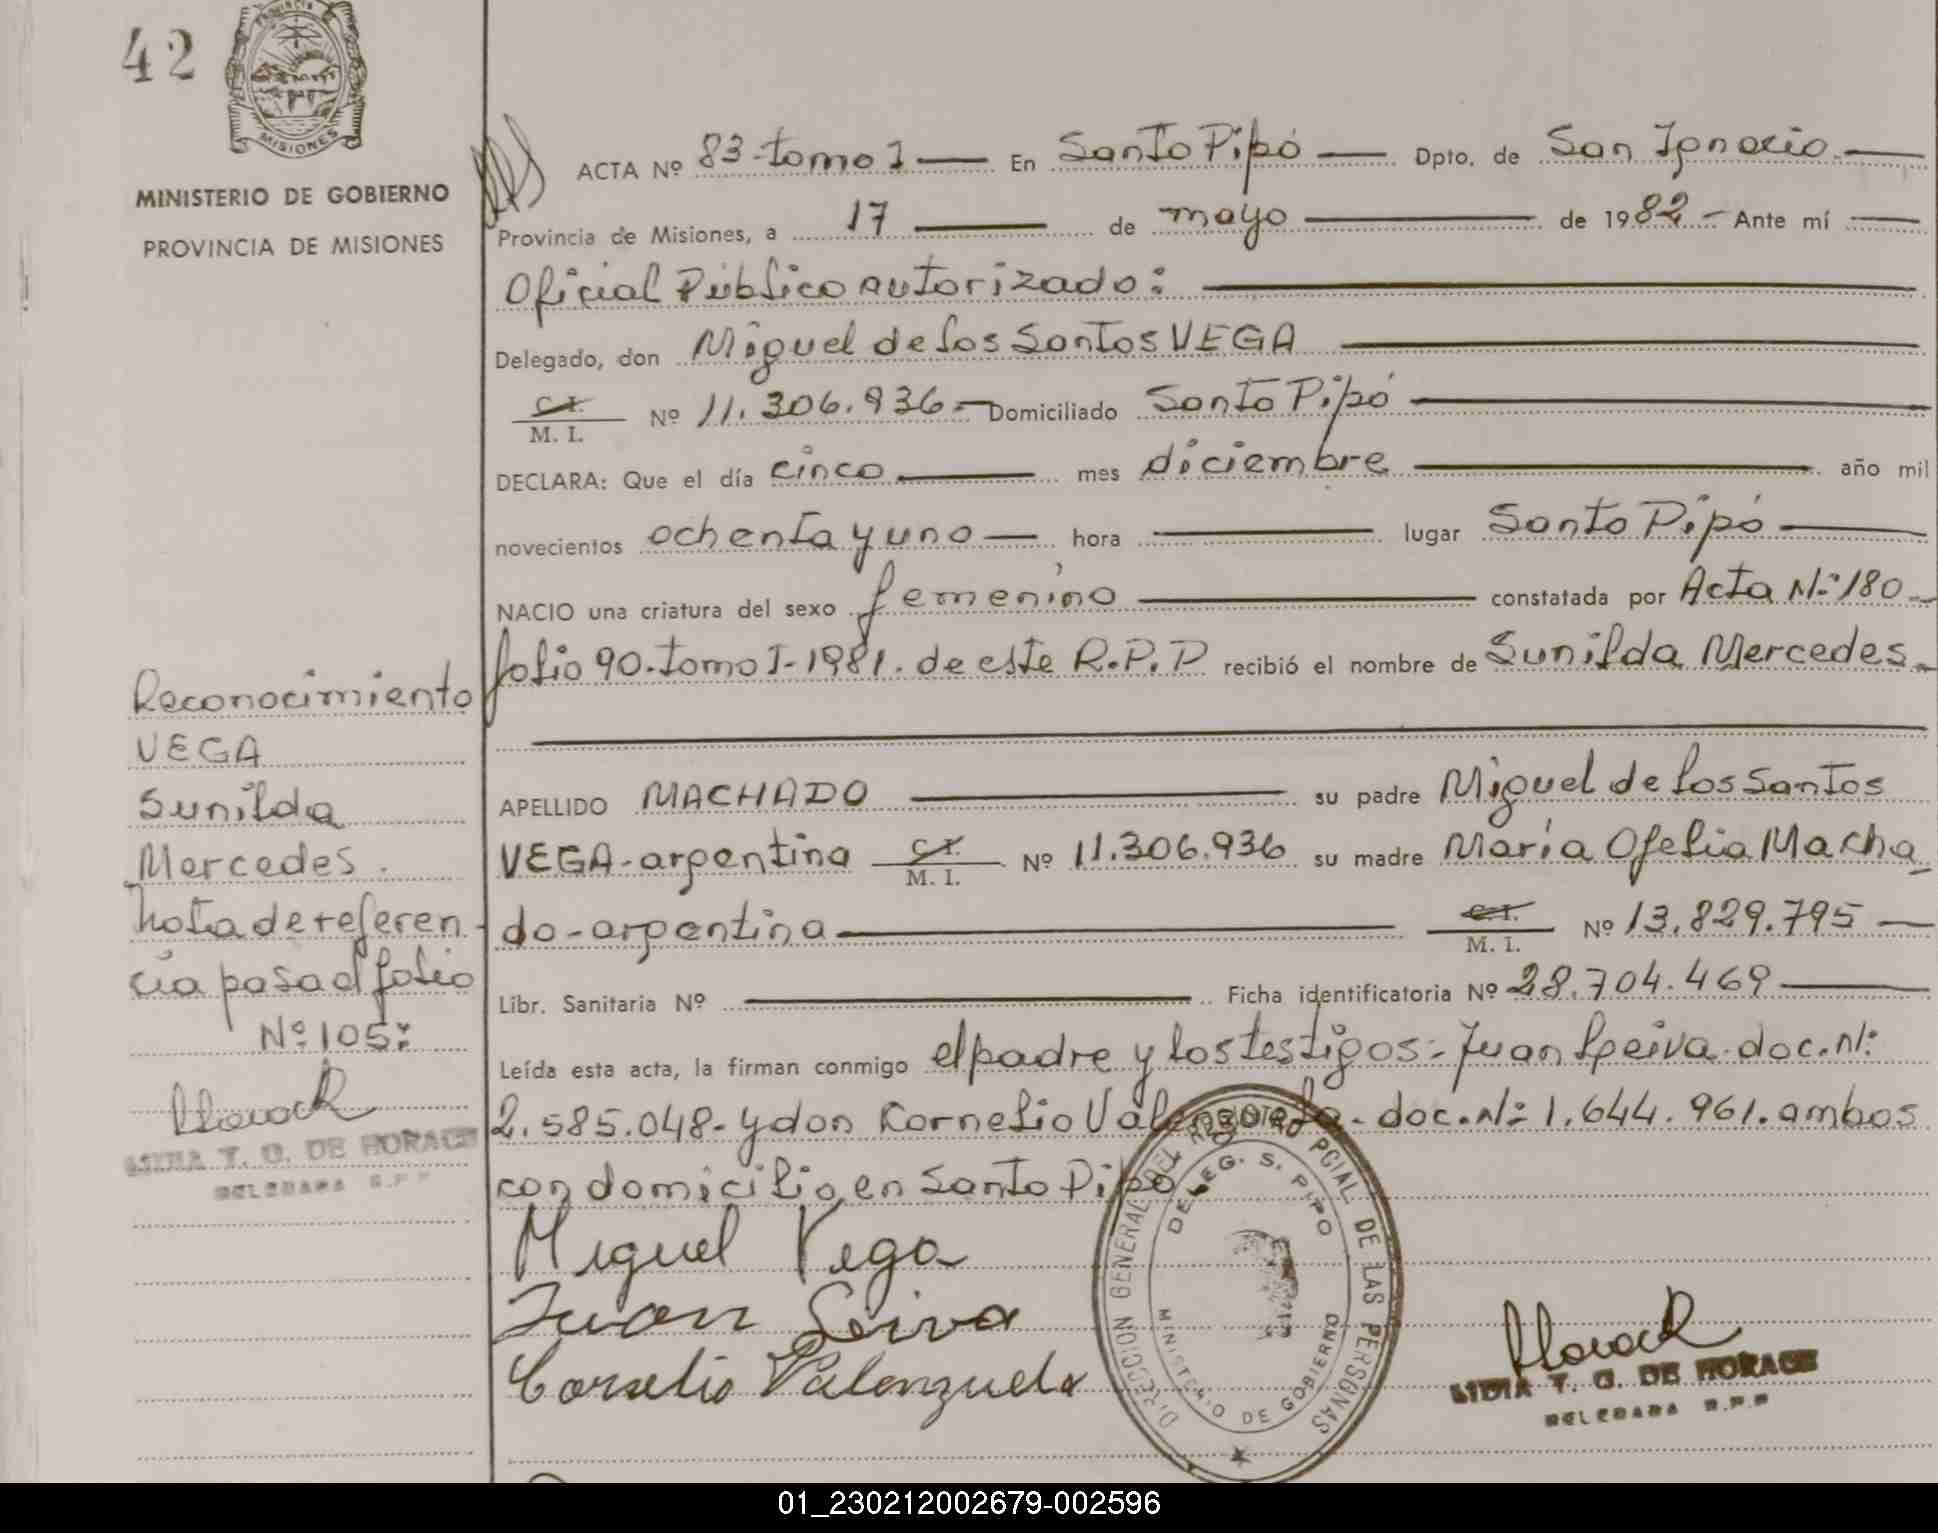 42
PROVINCIA DE
MISIONES
MINISTERIO DE GOBIERNO
PROVINCIA DE MISIONES
ACTA Nº 83-tomo I — En Santo Pipó — Dpto. de San Ignacio.—
Provincia de Misiones, a 17 — de mayo — de 1982.- Ante mí —
Oficial Público autorizado: —
Delegado, don Miguel de los Santos VEGA —
C. I. / M. I. Nº 11.306.936.- Domiciliado Santo Pipó —
DECLARA: Que el día cinco — mes diciembre — año mil
novecientos ochenta y uno — hora — lugar Santo Pipó —
NACIO una criatura del sexo femenino — constatada por Acta Nº 180-
folio 90-tomo I-1981. de este R.P.P recibió el nombre de Sunilda Mercedes.-
APELLIDO MACHADO — su padre Miguel de los Santos
VEGA-argentina C. I. / M. I. Nº 11.306.936 su madre María Ofelia Macha
do-argentina — C. I. / M. I. Nº 13.829.795 —
Libr. Sanitaria Nº — Ficha identificatoria Nº 28.704.469 —
Leída esta acta, la firman conmigo el padre y los testigos:- Juan Leiva-doc.Nº
2.585.048- y don Cornelio Valenzuela-doc.Nº 1.644.961. ambos
con domicilio en Santo Pipó.
Miguel Vega
Juan Leiva
Cornelio Valenzuela
Reconocimiento
VEGA
Sunilda
Mercedes.
Nota de referen-
cia pasa al folio
Nº 105:
LIDIA T. G. DE HORACK
DELEGADA R.P.P
DIRECCION GENERAL DEL REGISTRO PCIAL. DE LAS PERSONAS
DELEG. S. PIPO
MINISTERIO DE GOBIERNO
Horack
LIDIA T. G. DE HORACK
DELEGADA R.P.P
01_230212002679-002596